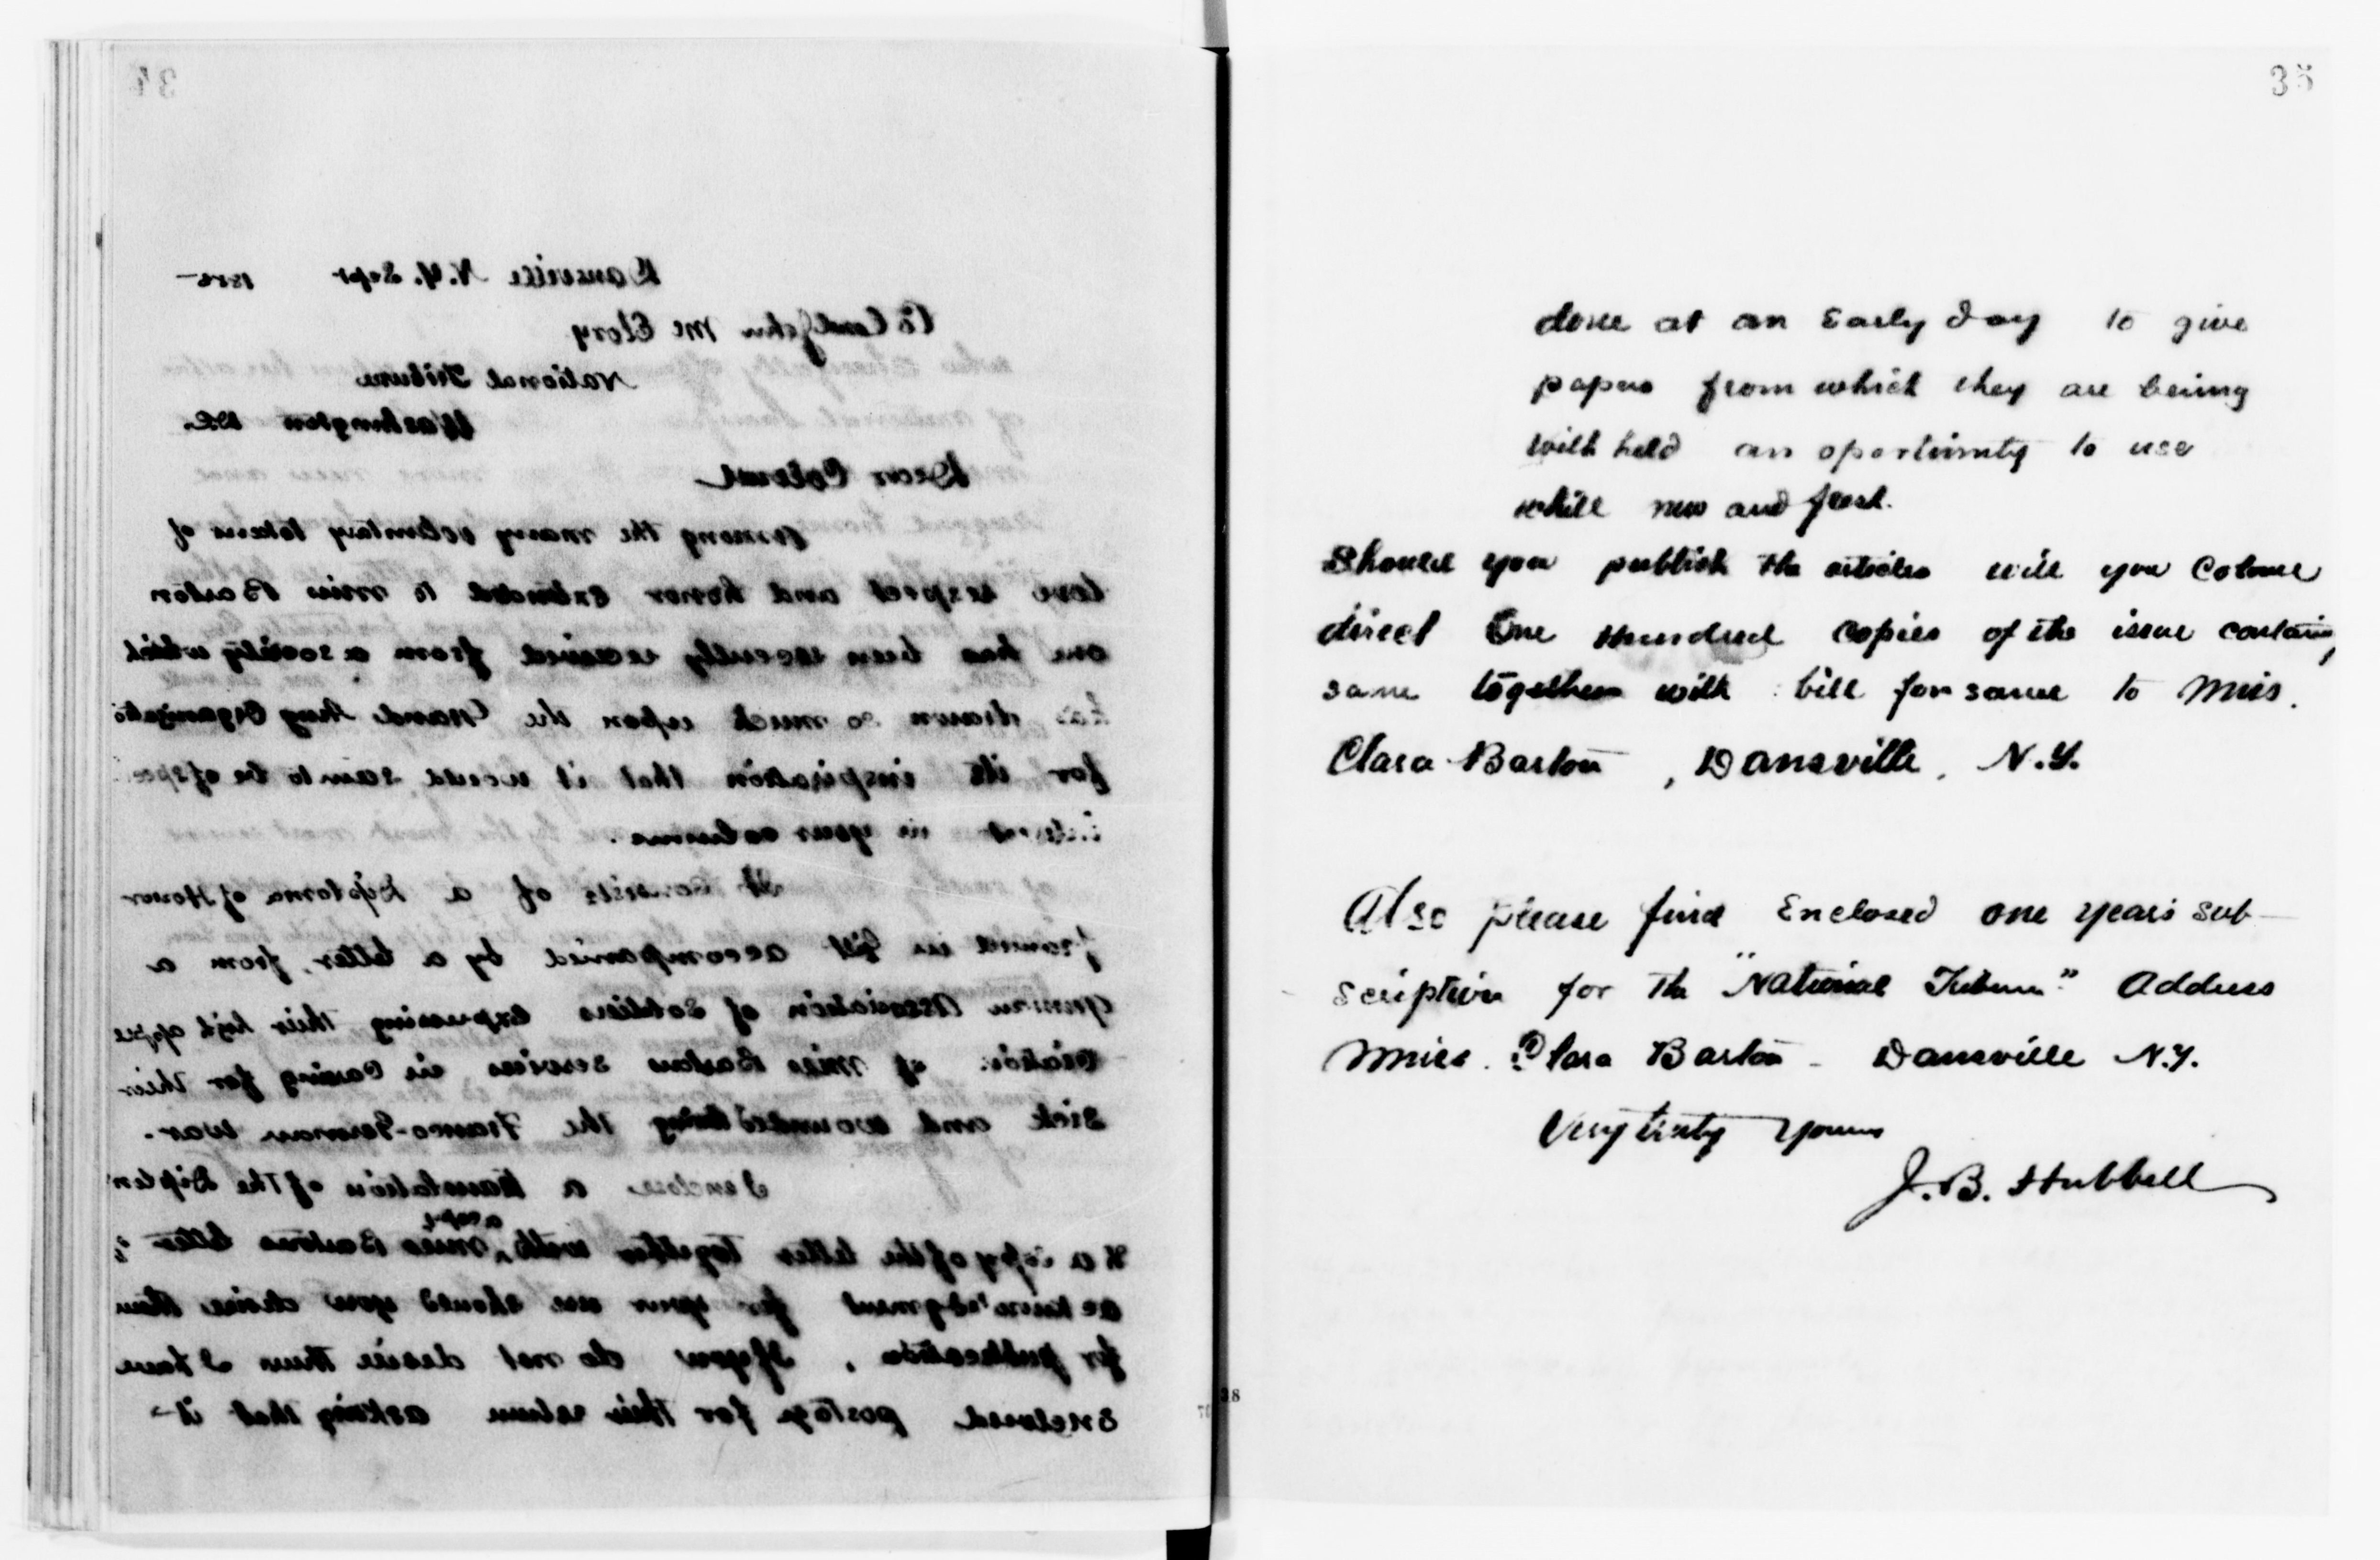 34
Dansville N.Y. Sept 188
To Conl John Mc Elory
National Tribune
Washington D.C.
Dear Colonel
Among the many voluntary tokens of
love respect and honor extended to miss Barton
one has been recently received from a society which
has drawn so much upon the Grand Army Organizatio
for its inspiration that it would seem to be of spec
interest in your columns.
It consists of a Diploma of Honor
framed in gilt accompanied by a letter, from a
German Association of Soldiers expressing their high appre
ciation of miss Bartons services in Caring for their
sick and wounded during the Franco-German war.
I enclose a translation of the Diplom
& a copy of the letter together with a copy miss Bartons letter of
acknowledgment for your use should you desire them
for publication. If you do not desire them I have
enclosed postage for their return asking that it
35
done at an Early day to give
papers from which they are being
with held an oportunity to use
while new and fresh.
Should you publish the articles will you Colonel
direct One Hundred Copies of the issue containing
same together with bill for same to Miss.
Clara Barton, Dansville, N.Y.
Also please find Enclosed one years sub-
scription for The "National Tribune" Address
Miss. Clara Barton - Dansville N.Y.
Very truly yours
J. B. Hubbell
38
37